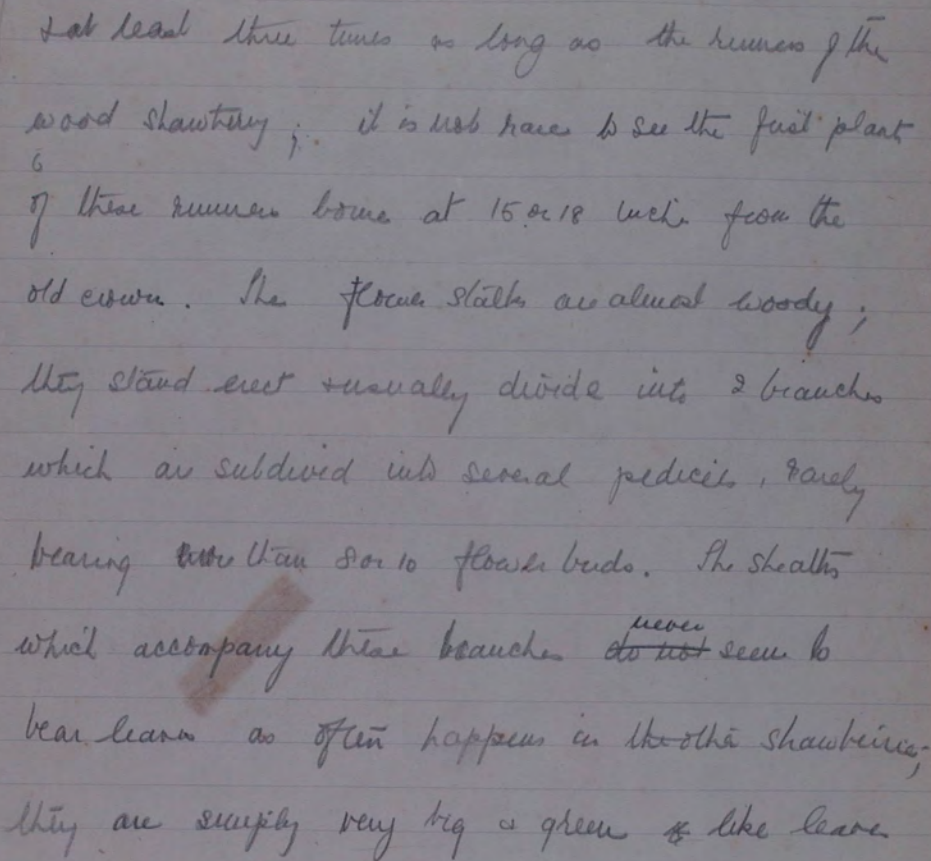 & at least three times as long as the runners of the
wood strawberry; it is not rare to see the first plant
6
of these runners borne at 15 or 18 inch. from the
old crown. The flower stalks are almost woody;
they stand erect & usually divide into 2 branches
which are subdivid into several pedicels, rarely
bearing more than 8 or 10 flower buds. The sheaths
which accompany these branches ~~do not~~ never seem to
bear leaves as often happens in ~~the~~ other strawberries;
they are simply very big & green like leaves